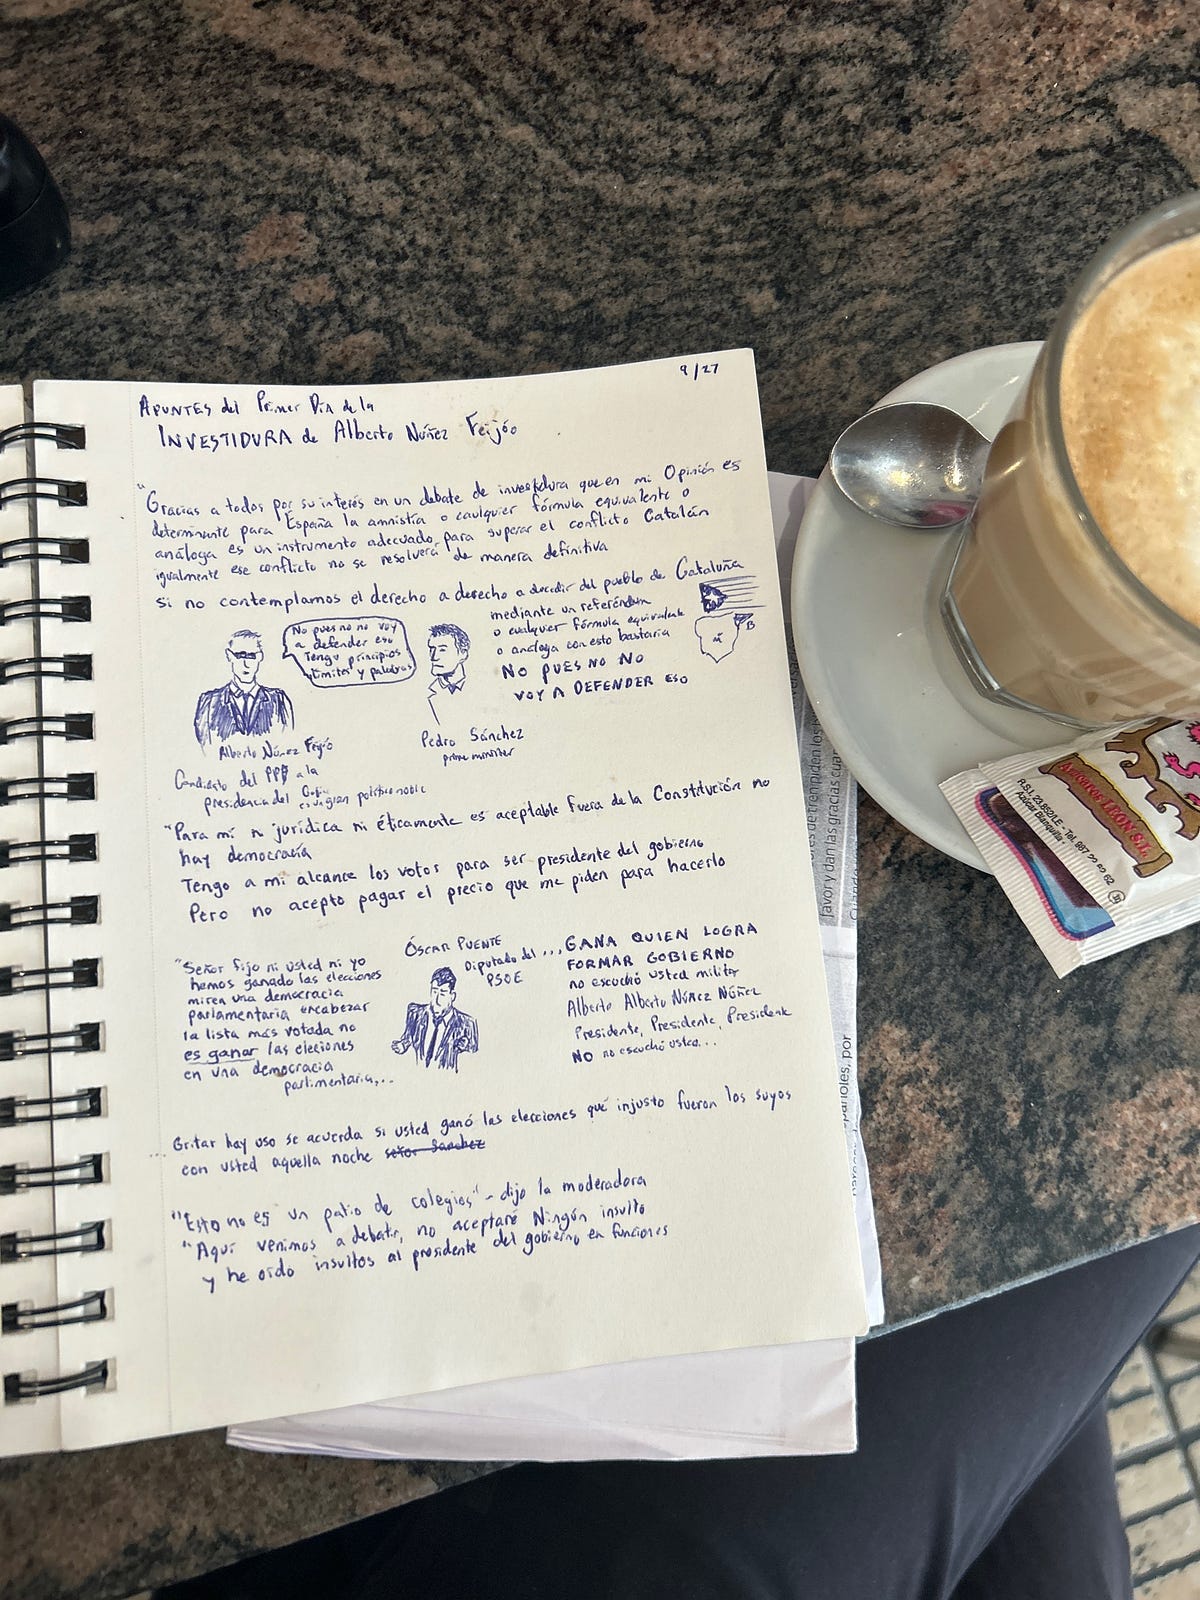 9/27
APUNTES del Primer Día de la
INVESTIDURA de Alberto Núñez Feijóo
"Gracias a todos por su interés en un debate de investidura que en mi Opinión es
determinante para España la amnistía o caulquier fórmula equivalente o
análoga es un instrumento adecuado para superar el conflicto Catalán
igualmente ese conflicto no se resolverá de manera definitiva
si no contemplamos el derecho a derecho a decidir del pueblo de Cataluña
mediante un referéndum
o cualquier fórmula equivalente
o análoga con esto bastaría
NO PUES NO NO
VOY A DEFENDER ESO
B
No pues no no voy
a defender eso
Tengo principios
límites y palabras
Alberto Núñez Feijóo
Candidato del PP a la
presidencia del
es un gran político noble
Pedro Sánchez
prime minister
"Para mí ni jurídica ni éticamente es aceptable fuera de la Constitución no
hay democracia
Tengo a mi alcance los votos para ser presidente del gobierno
Pero no acepto pagar el precio que me piden para hacerlo
ÓSCAR PUENTE
Diputado del
PSOE
"Señor fijo ni usted ni yo
hemos ganado las elecciones
miren una democracia
parlamentaria encabezar
la lista más votada no
es ganar las eleciones
en una democracia
parlimentaria,..
...GANA QUIEN LOGRA
FORMAR GOBIERNO
no escuchó usted militar
Alberto Alberto Núñez Núñez
Presidente, Presidente, Presidente
NO no escuchó usted...
... Gritar hay uso se acuerda si usted ganó las elecciones qué injusto fueron los suyos
con usted aquella noche señor Sanchez
"Esto no es un patio de colegios" - dijo la moderadora
"Aquí venimos a debatir, no aceptaré Ningún insulto
y he oído insultos al presidente del gobierno en funciones
Azucares LEON S.L.
R.S.I. 23.850/LE - Tel. 987
Azúcar Blanquilla
favor y dan las gracias cuan
españoles, por